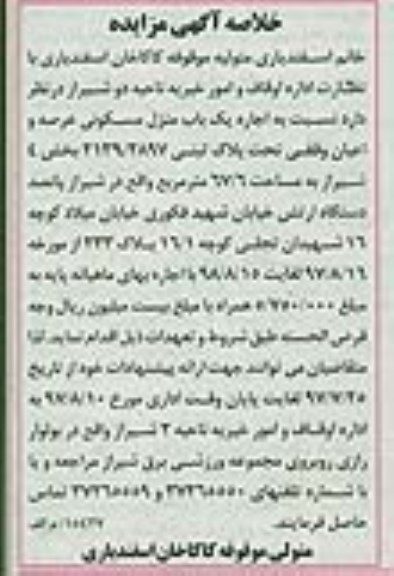 خلاصه آگهی مزایده
خانم اسفندیاری متولیه موقوفه کاکاخان اسفندیاری با
نظارت اداره اوقاف و امور خیریه ناحیه دو شیراز در نظر
دارد نسبت به اجاره یک باب منزل مسکونی عرصه و
اعیان وقفی تحت پلاک ثبتی ۲۱۳۹/۲۸۹۷ بخش ٤
شیراز به مساحت ٦٧/٦ مترمربع واقع در شیراز پانصد
دستگاه ارتش خیابان شهید فکوری خیابان میلاد کوچه
١٦ شهیدان نجفی کوچه ١٦/١ پلاک ٢٣٣ از مورخه
٩٧/٨/١٦ لغایت ٩٨/٨/١٥ با اجاره بهای ماهیانه پایه به
مبلغ ٥/٧٥٠/٠٠٠ همراه با مبلغ بیست میلیون ریال وجه
قرض الحسنه طبق شروط و تعهدات ذیل اقدام نماید. لذا
متقاضیان می توانند جهت ارائه پیشنهادات خود از تاریخ
٩٧/٧/٢٥ لغایت پایان وقت اداری مورخ ٩٧/٨/١٠ به
اداره اوقاف و امور خیریه ناحیه ٢ شیراز واقع در بولوار
رازی روبروی مجموعه ورزشی برق شیراز مراجعه و یا
با شماره تلفنهای و تماس
حاصل فرمایند. م الف
متولی موقوفه کاکاخان اسفندیاری